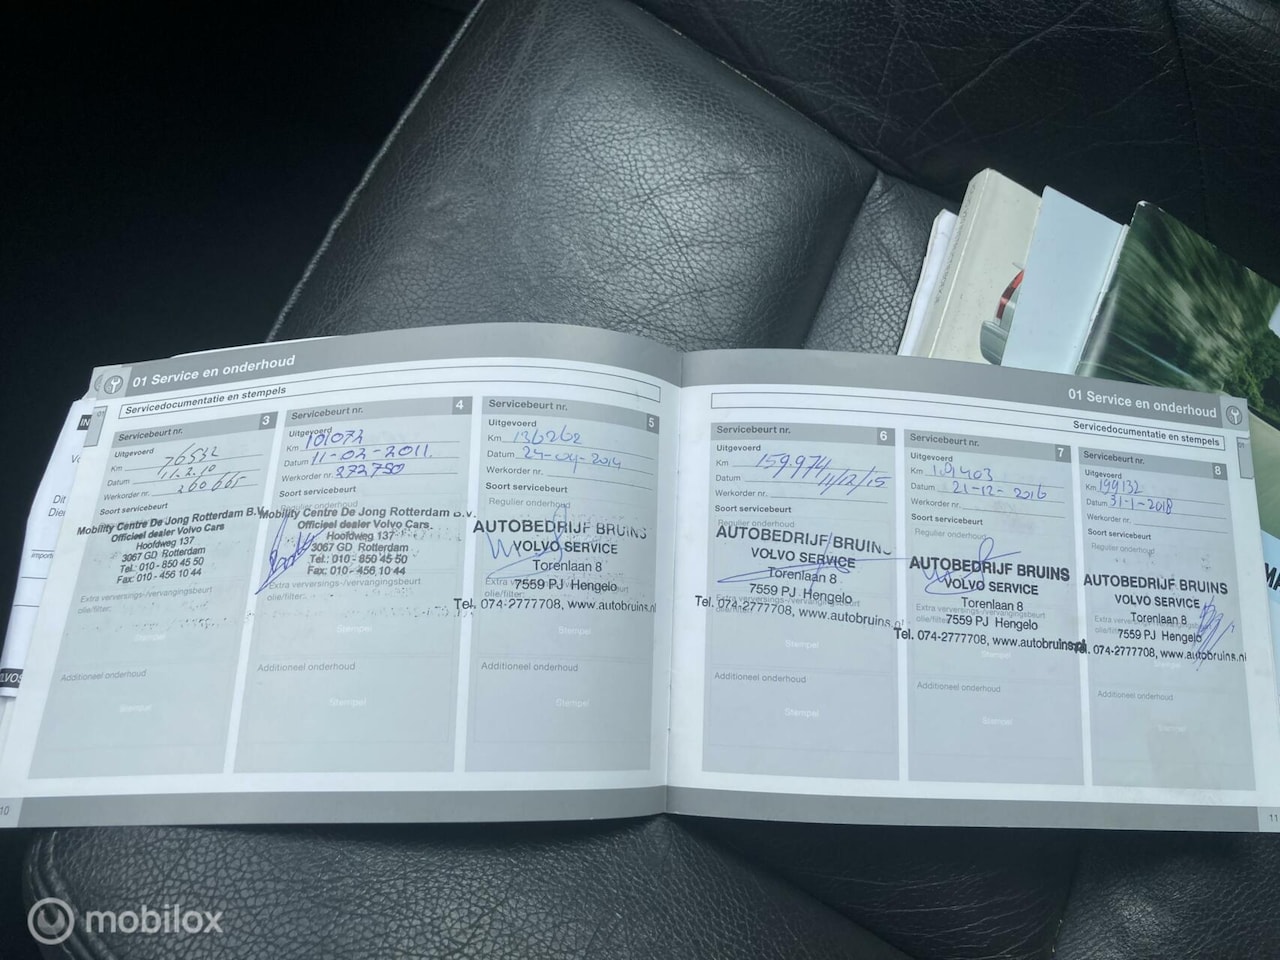 01 Service en onderhoud
Servicedocumentatie en stempels
Servicebeurt nr. 3
Uitgevoerd
Km 76532
Datum 1.2.10
Werkorder nr. 260665
Soort servicebeurt
Mobility Centre De Jong Rotterdam B.V.
Officieel dealer Volvo Cars
Hoofdweg 137
3067 GD Rotterdam
Tel.: 010 - 850 45 50
Fax: 010 - 456 10 44
Extra verversings-/vervangingsbeurt
olie/filter:
Stempel
Additioneel onderhoud
Stempel
10
Servicebeurt nr. 4
Uitgevoerd
Km 101072
Datum 11-02-2011.
Werkorder nr. 232750
Soort servicebeurt
Regulier onderhoud
Mobility Centre De Jong Rotterdam B.V.
Officieel dealer Volvo Cars.
Hoofdweg 137
3067 GD Rotterdam
Tel.: 010 - 850 45 50
Fax: 010 - 456 10 44
Extra verversings-/vervangingsbeurt
olie/filter:
Stempel
Additioneel onderhoud
Stempel
Servicebeurt nr. 5
Uitgevoerd
Km 136262
Datum 24-04-2014
Werkorder nr.
Soort servicebeurt
Regulier onderhoud
AUTOBEDRIJF BRUINS
VOLVO SERVICE
Torenlaan 8
7559 PJ Hengelo
Extra verversings-/vervangingsbeurt
olie/filter:
Tel. 074-2777708, www.autobruins.nl
Stempel
Additioneel onderhoud
Stempel
01 Service en onderhoud
Servicedocumentatie en stempels
Servicebeurt nr. 6
Uitgevoerd
Km 159.974
Datum 11/12/15
Werkorder nr.
Soort servicebeurt
Regulier onderhoud
AUTOBEDRIJF BRUINS
VOLVO SERVICE
Torenlaan 8
7559 PJ Hengelo
Tel. 074-2777708, www.autobruins.nl
Stempel
Additioneel onderhoud
Stempel
Servicebeurt nr. 7
Uitgevoerd
Km
Datum 21-12-2016
Werkorder nr.
Soort servicebeurt
Regulier onderhoud
AUTOBEDRIJF BRUINS
VOLVO SERVICE
Torenlaan 8
7559 PJ Hengelo
Extra verversings-/vervangingsbeurt
olie/filter:
Tel. 074-2777708, www.autobruins.nl
Stempel
Additioneel onderhoud
Stempel
Servicebeurt nr. 8
Uitgevoerd
Km 199132
Datum 31-1-2018
Werkorder nr.
Soort servicebeurt
Regulier onderhoud
AUTOBEDRIJF BRUINS
VOLVO SERVICE
Torenlaan 8
7559 PJ Hengelo
Extra verversings-/vervangingsbeurt
olie/filter:
Tel. 074-2777708, www.autobruins.nl
Stempel
Additioneel onderhoud
Stempel
11
mobilox